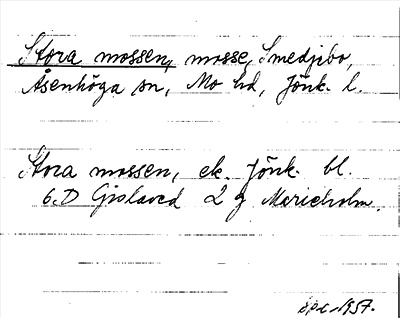 Stora mossen, mosse, Smedjebo,
Åsenhöga sn, Mo hd, Jönk. l.
Stora mossen, ek. Jönk. bl.
6.D Gislaved 2 g Marieholm.
1957.